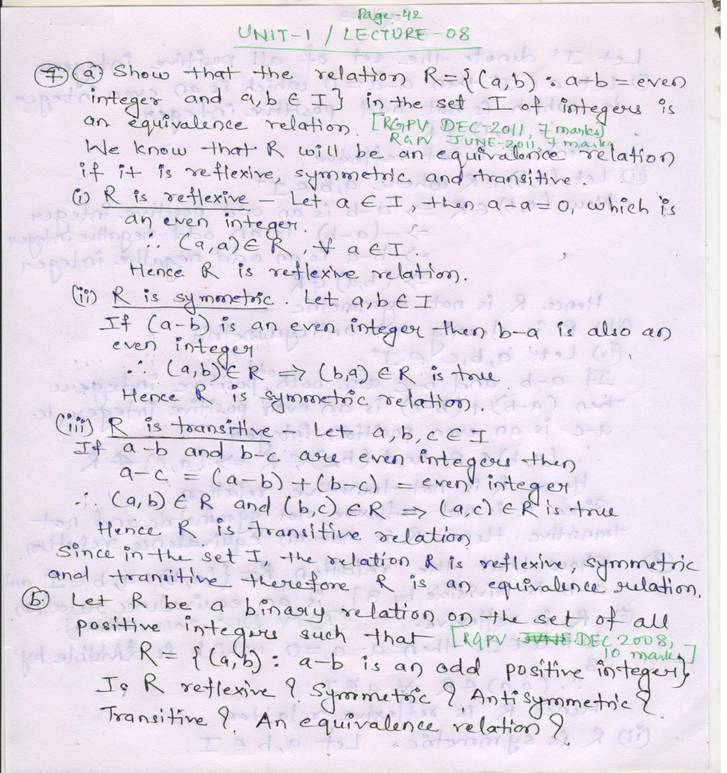 Page-42
UNIT-1 / LECTURE-08
7 (a) Show that the relation R={(a,b) : a-b = even
integer and a,b ∈ I} in the set I of integers is
an equivalence relation. [RGPV DEC-2011, 7 marks]
RGPV JUNE-2011, 7 marks
We know that R will be an equivalence relation
if it is reflexive, symmetric and transitive.
(i) R is reflexive - Let a ∈ I, then a-a = 0, which is
an even integer.
∴ (a,a) ∈ R, ∀ a ∈ I
Hence R is reflexive relation.
(ii) R is symmetric. Let a,b ∈ I
If (a-b) is an even integer then b-a is also an
even integer
∴ (a,b) ∈ R ⇒ (b,a) ∈ R is true
Hence R is symmetric relation.
(iii) R is transitive - Let a,b,c ∈ I
If a-b and b-c are even integers then
a-c = (a-b) + (b-c) = even integer
∴ (a,b) ∈ R and (b,c) ∈ R ⇒ (a,c) ∈ R is true
Hence R is transitive relation
Since in the set I, the relation R is reflexive, symmetric
and transitive therefore R is an equivalence relation.
(b) Let R be a binary relation on the set of all
positive integers such that [RGPV JUNE DEC 2008,
10 marks]
R = {(a,b) : a-b is an odd positive integer}
Is R reflexive? Symmetric? Antisymmetric?
Transitive?. An equivalence relation?